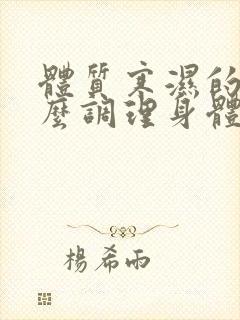 體質寒濕的
麼調理身體
楊希雨